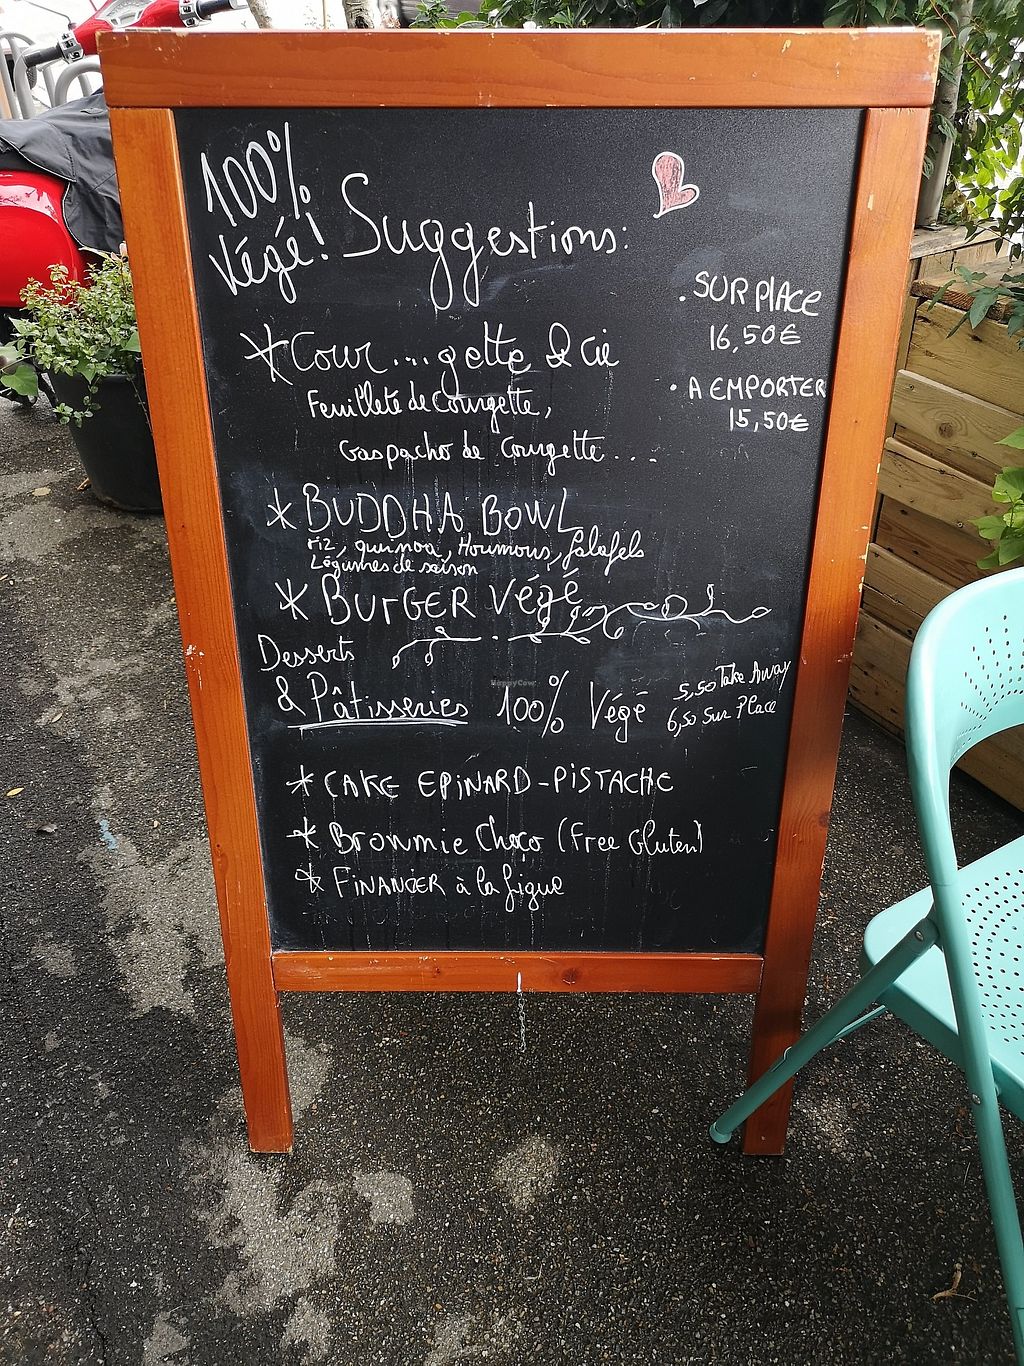 100%
Végé! Suggestions:
. SUR PLACE
16,50€
. A EMPORTER
15,50€
* Cour...gette & Cie
Feuilleté de Courgette,
Gaspacho de Courgette...
* BUDDHA BOWL
riz, quinoa, Houmous, falafels
Légumes de saison
* BURGER Végé
Desserts
& Pâtisseries 100% Végé
5,50 Take Away
6,50 Sur Place
* CAKE EPINARD-PISTACHE
* Brownie Choco (Free Gluten)
* FINANCIER à la figue
HappyCow